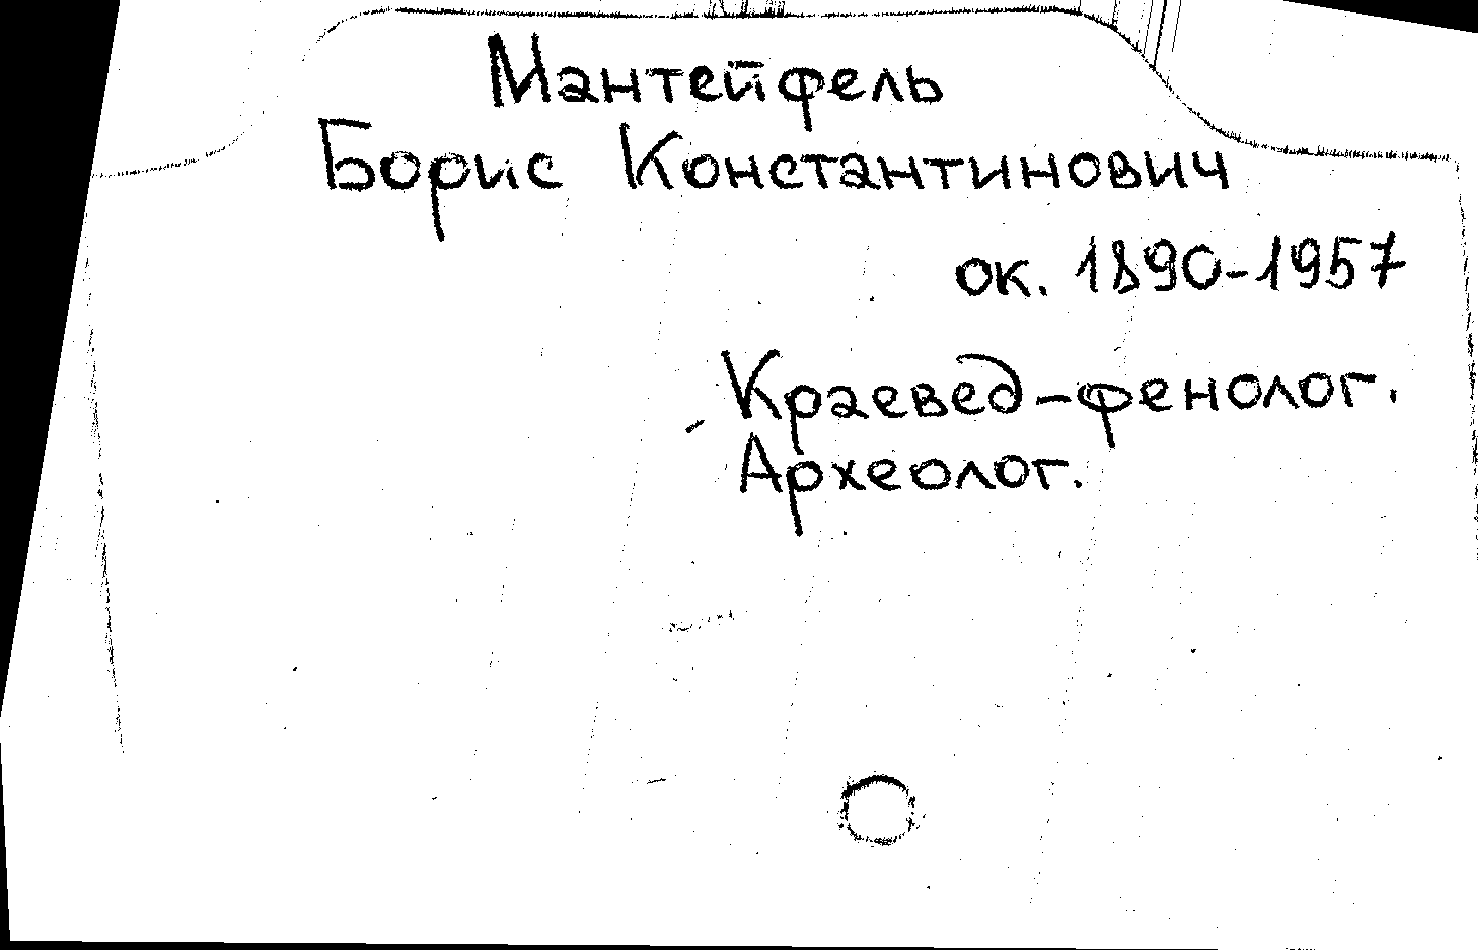 Мантейфель
Борис Константинович
ок. 1890-1957
Краевед-фенолог.
Археолог.